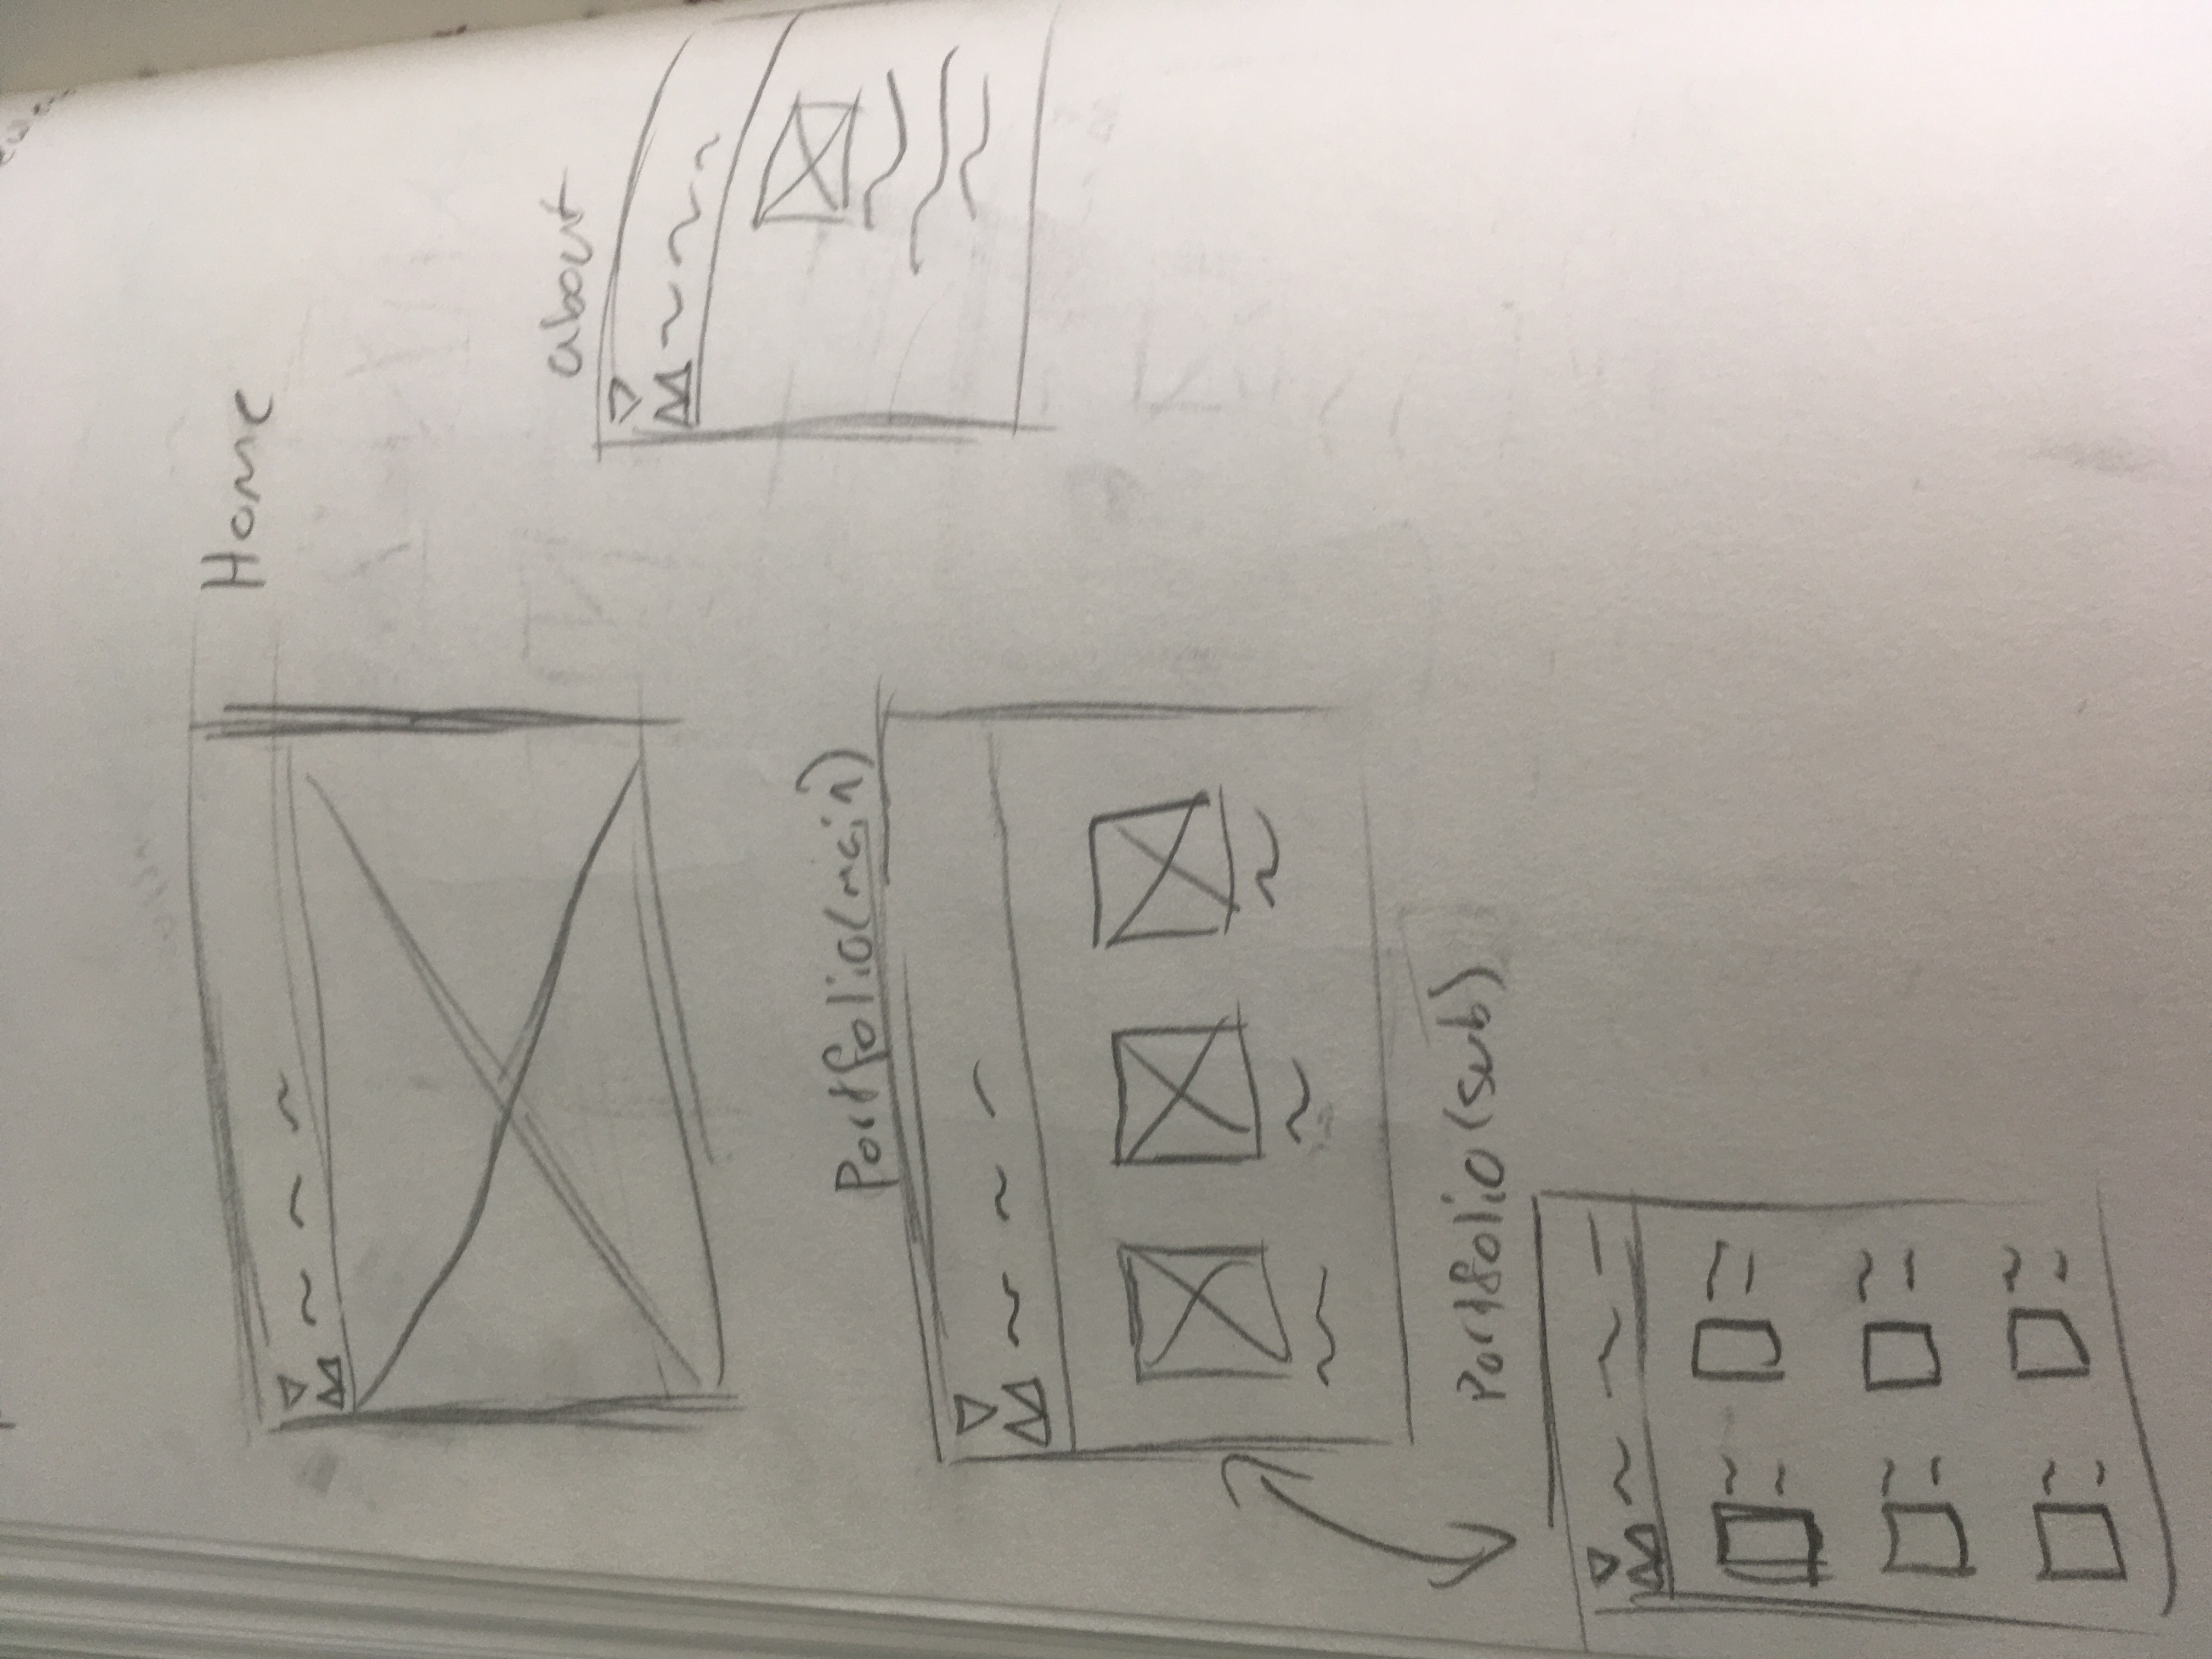 Home
about
Portfolio(main)
Portfolio(sub)